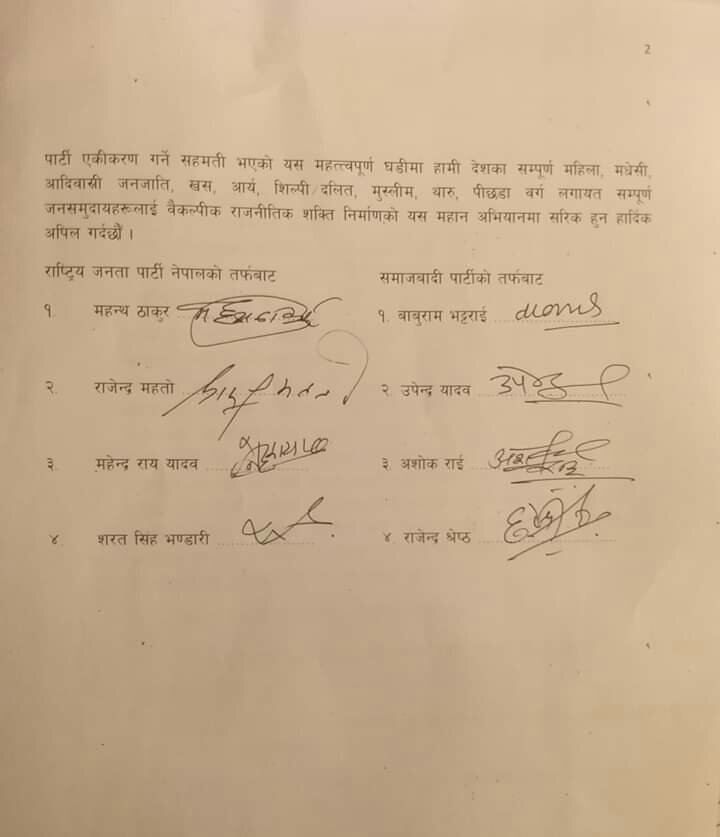 2
पार्टी एकीकरण गर्ने सहमती भएको यस महत्त्वपूर्ण घडीमा हामी देशका सम्पूर्ण महिला, मधेसी,
आदिवासी जनजाति, खस, आर्य, शिल्पी/दलित, मुस्लीम, थारु, पीछडा वर्ग लगायत सम्पूर्ण
जनसमुदायहरूलाई वैकल्पीक राजनीतिक शक्ति निर्माणको यस महान अभियानमा सरिक हुन हार्दिक
अपिल गर्दछौं ।
राष्ट्रिय जनता पार्टी नेपालको तर्फबाट समाजवादी पार्टीको तर्फबाट
१. महन्थ ठाकुर १. बाबुराम भट्टराई
२. राजेन्द्र महतो २. उपेन्द्र यादव
३. महेन्द्र राय यादव ३. अशोक राई
४. शरत सिंह भण्डारी ४. राजेन्द्र श्रेष्ठ